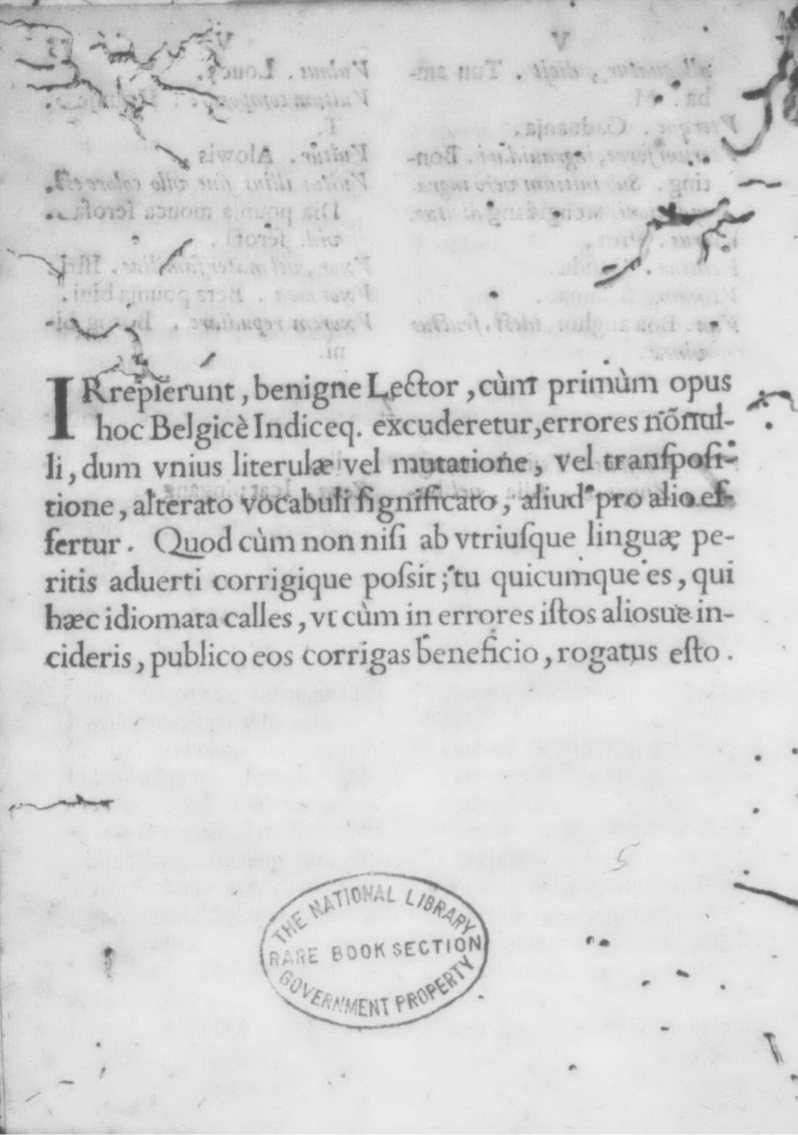 IRrepserunt, benigne Lector, cùm primùm opus
hoc Belgicè Indiceq. excuderetur, errores nõnul-
li, dum vnius literulæ vel mutatione, vel transpoſi-
tione, alterato vocabuli ſignificato, aliud pro alio eſ-
fertur. Quod cùm non niſi ab vtriuſque linguæ pe-
ritis aduerti corrigique poſsit; tu quicumque es, qui
hæc idiomata calles, vt cùm in errores iſtos aliosue in-
cideris, publico eos corrigas beneficio, rogatus eſto.
5
THE NATIONAL LIBRARY
RARE BOOK SECTION
GOVERNMENT PROPERTY